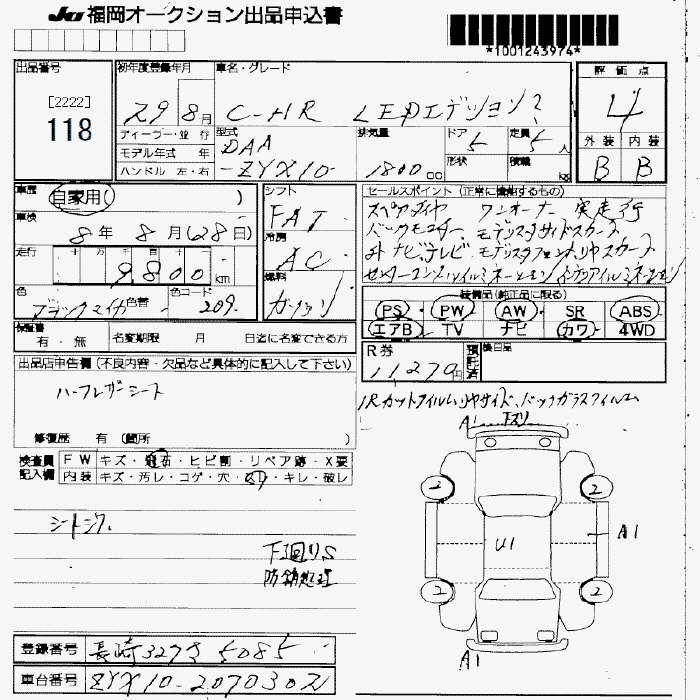 JU福岡オークション出品申込書
*1001243974*
出品番号 [2222] 118
初年度登録年月 29 8月
車名・グレード C-HR LEDエディション
評価点 4
外装 B 内装 B
ディーラー・並行
モデル年式 年
ハンドル 左・右
型式 DAA -ZYX10-
排気量 1800cc
ドア 5 形状
定員 5人 積載 kg
車歴 自家用( )
車検 8年 8月(28日)
走行 十万千百十 9800km
色 ブラックマイカ 色替 色コード 209
シフト FAT
冷房 AC
燃料 ガソリン
セールスポイント (正常に機能するもの)
スペアタイヤ ワンオーナー 実走行
バックモニター モデリスタサイドスカート
外ナビ、テレビ モデリスタフロント、リヤスカート
装備品(純正品に限る)
PS PW AW SR ABS
エアB TV ナビ カワ 4WD
保証書 有・無 名変期限 月 日迄に名変できる方
R券 11270円 預託済 後日品
出品店申告欄 (不良内容・欠品など具体的に記入して下さい)
ハーフレザーシート
修復歴 有 (箇所 )
IRカットフィルム、リヤサイド、バックガラスフィルム
検査員記入欄
FW キズ・飛石・ヒビ割・リペア跡・X要
内装 キズ・汚レ・コゲ・穴・スリ・キレ・破レ
シートシワ、
下回りS
防錆処理
A1 下スリ
2 2
U1 A1
2 2
A1
登録番号 長崎 327さ 5085
車台番号 ZYX10-2070302